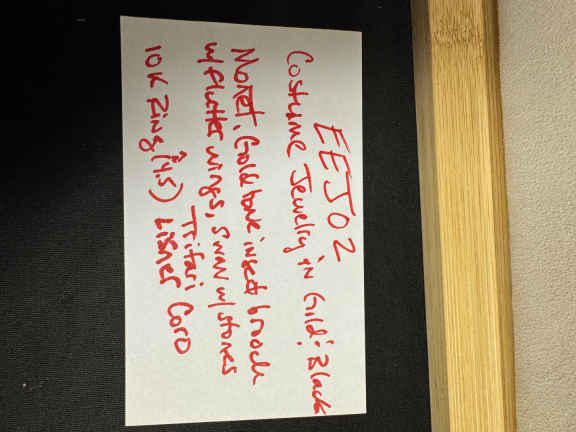 EEJ02
Costume Jewelry in Gild: Black
Monet, Gold tone insect brooch
w/ flutter wings, Swan w/ stones
Trifari
10K Ring (4.5) Lisner Coro